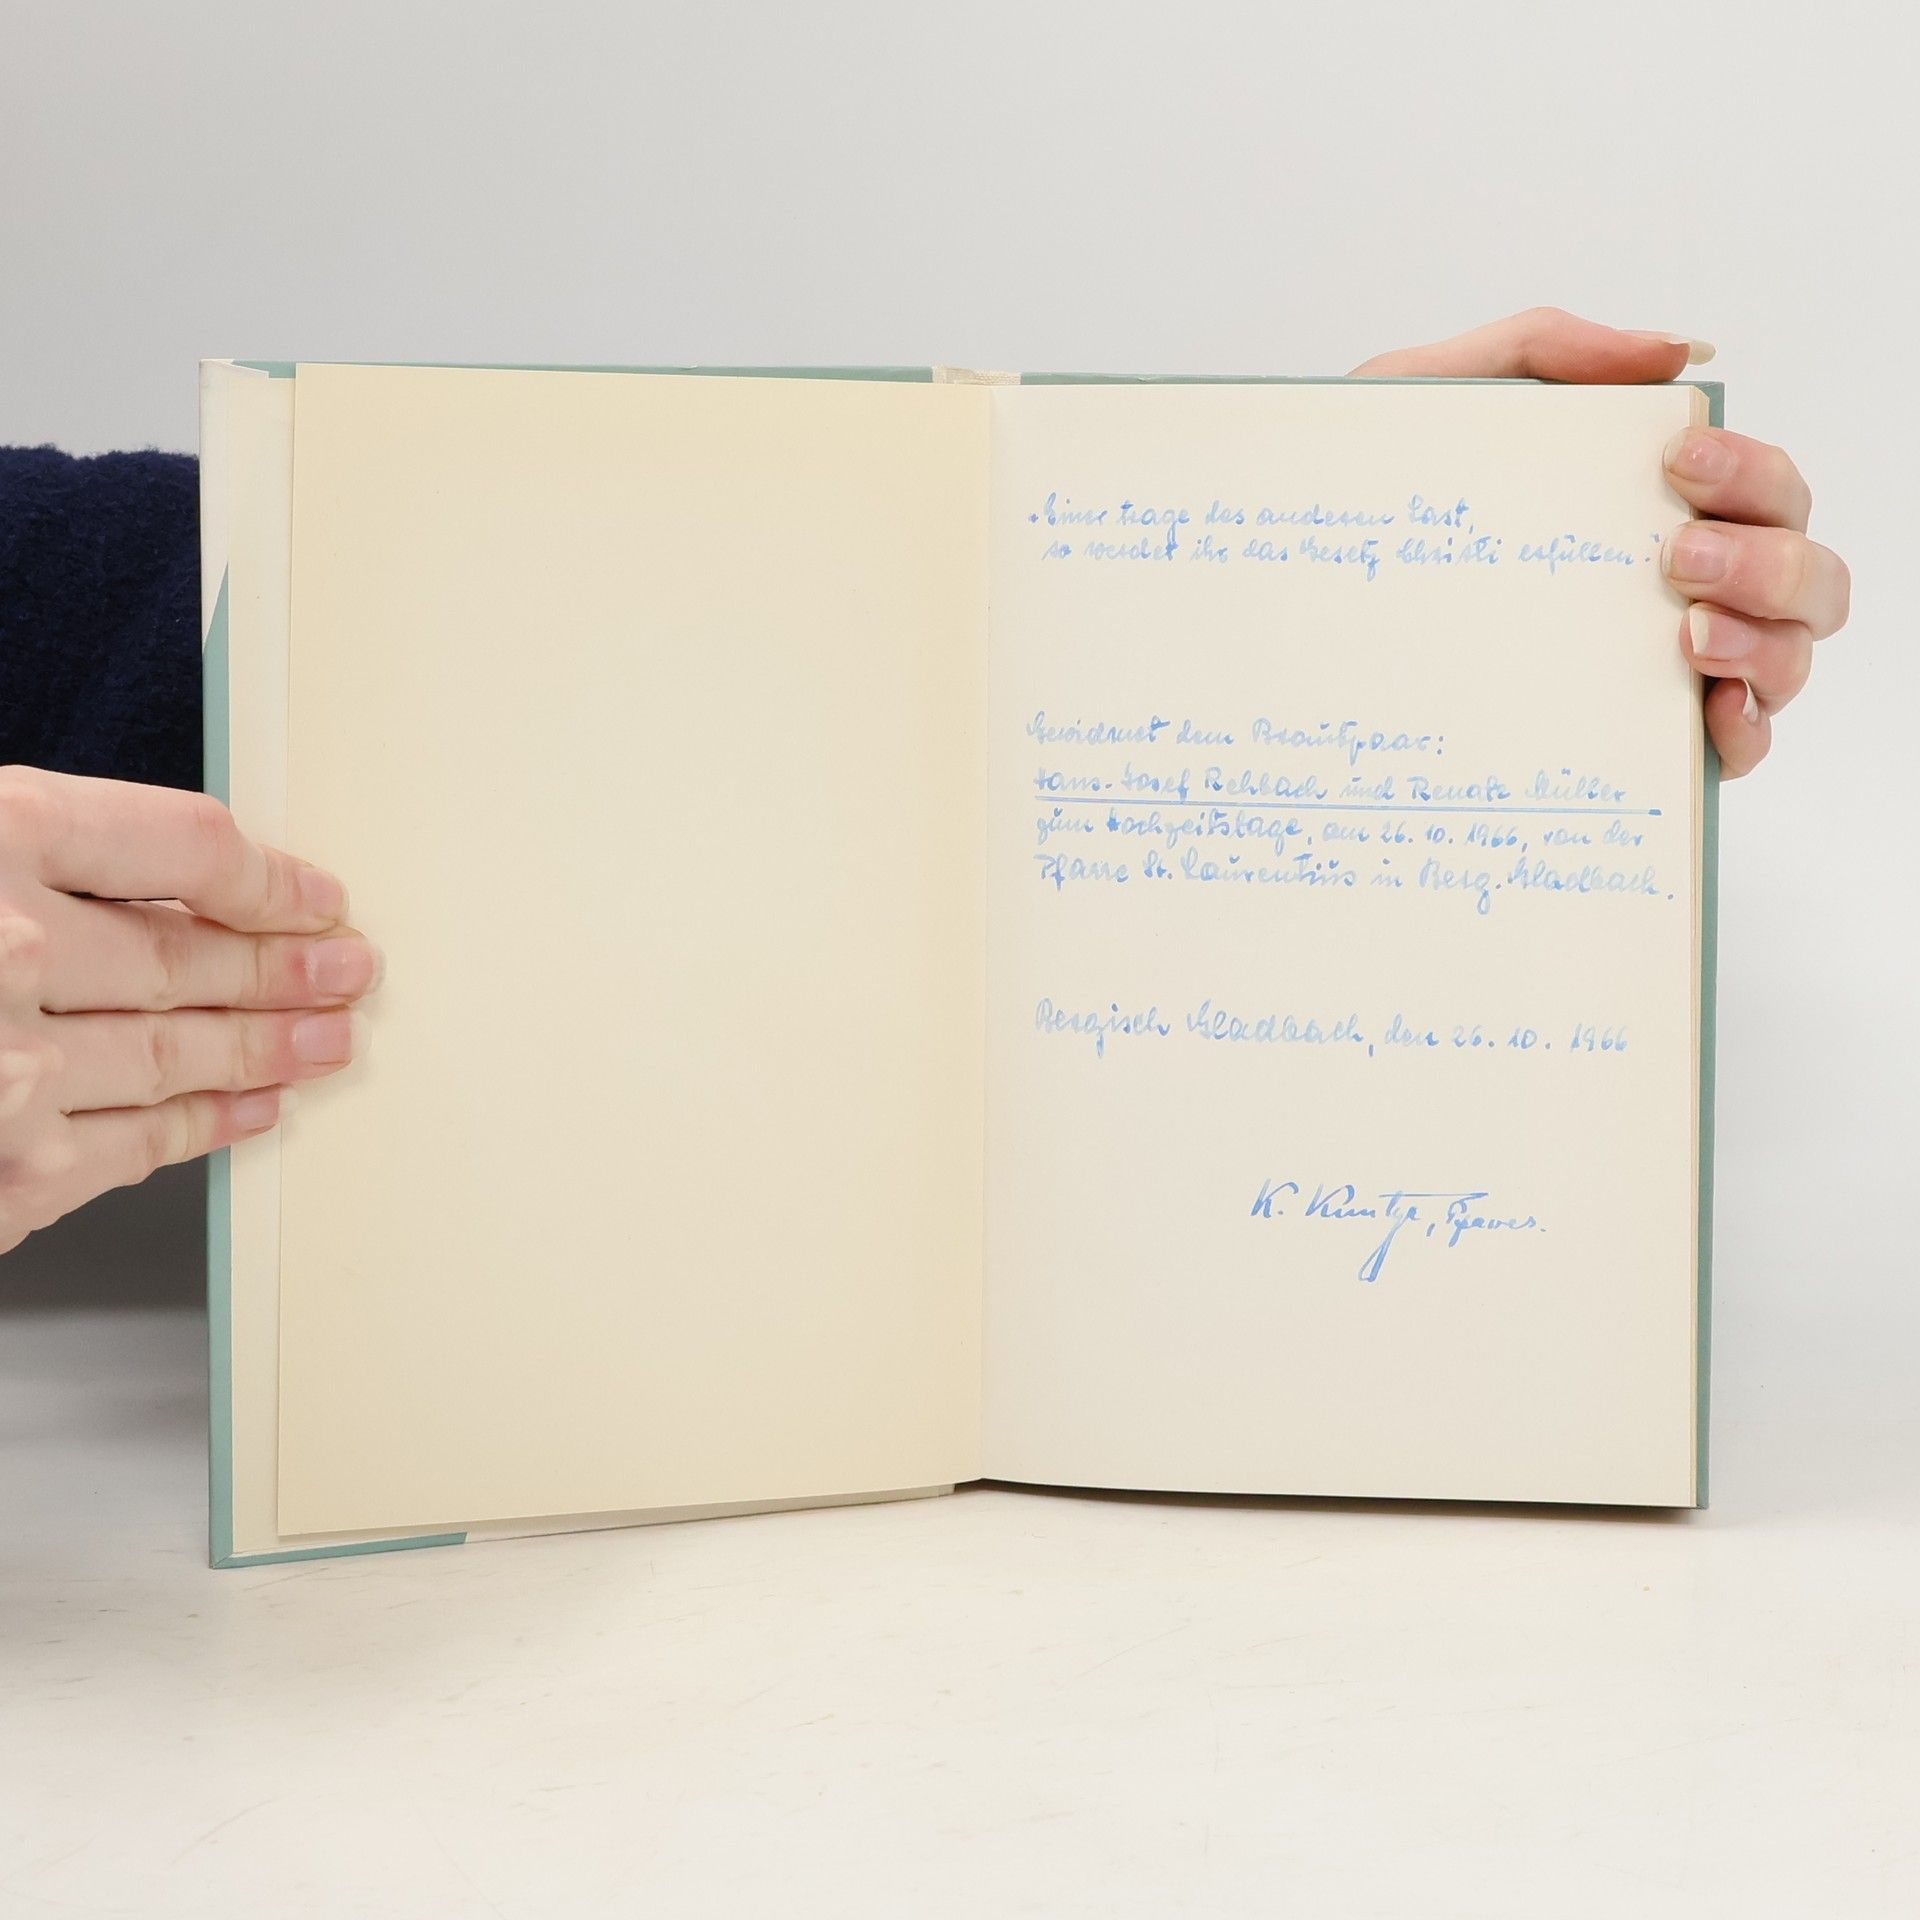 „Einer trage des anderen Last,
so werdet ihr das Gesetz Christi erfüllen."
Gewidmet dem Brautpaar:
Hans-Josef Rehbach und Renate Müller
zum Hochzeitstage, am 26. 10. 1966, von der
Pfarre St. Laurentius in Berg. Gladbach.
Bergisch Gladbach, den 26. 10. 1966
K. , Pfarrer.